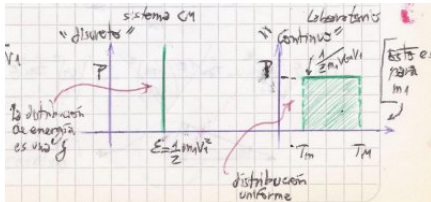 sistema CM
Laboratorio
"discreto"
"Continuo"
V1
P
P
Esto es
para
m1
la distribución
de energía
es una
ε=1/2 m1V1²
Tm
TM
distribución
uniforme